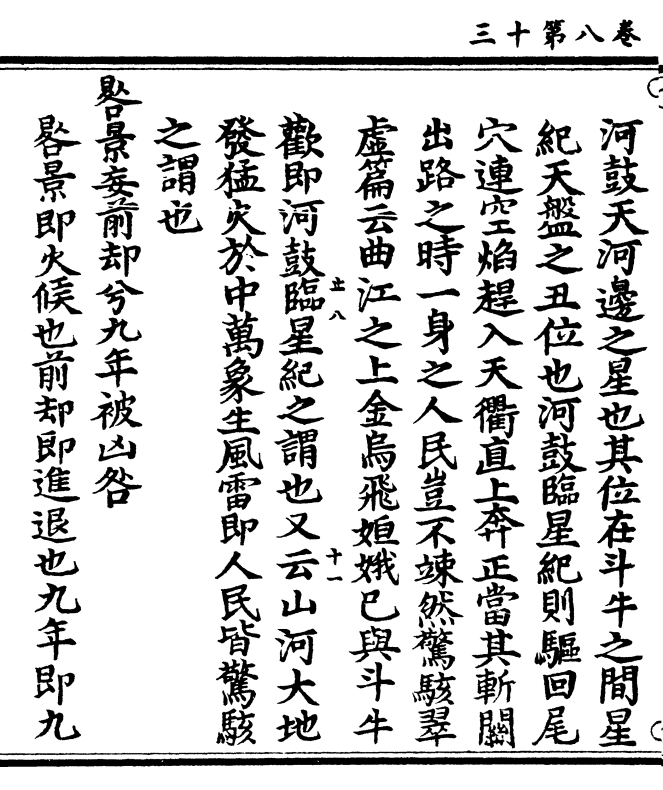 三十第八卷
河鼓天河邊之星也其位在斗牛之間星
紀天盤之丑位也河鼓臨星紀則驅回尾
穴連空焰趕入天衢直上奔正當其斬關
出路之時一身之人民豈不竦然驚駭翠
虛篇云曲江之上金烏飛姮娥已與斗牛
歡即河鼓臨星紀之謂也又云山河大地
發猛火於中萬象生風雷即人民皆驚駭
之謂也
晷景妄前却兮九年被凶咎
晷景即火候也前却即進退也九年即九